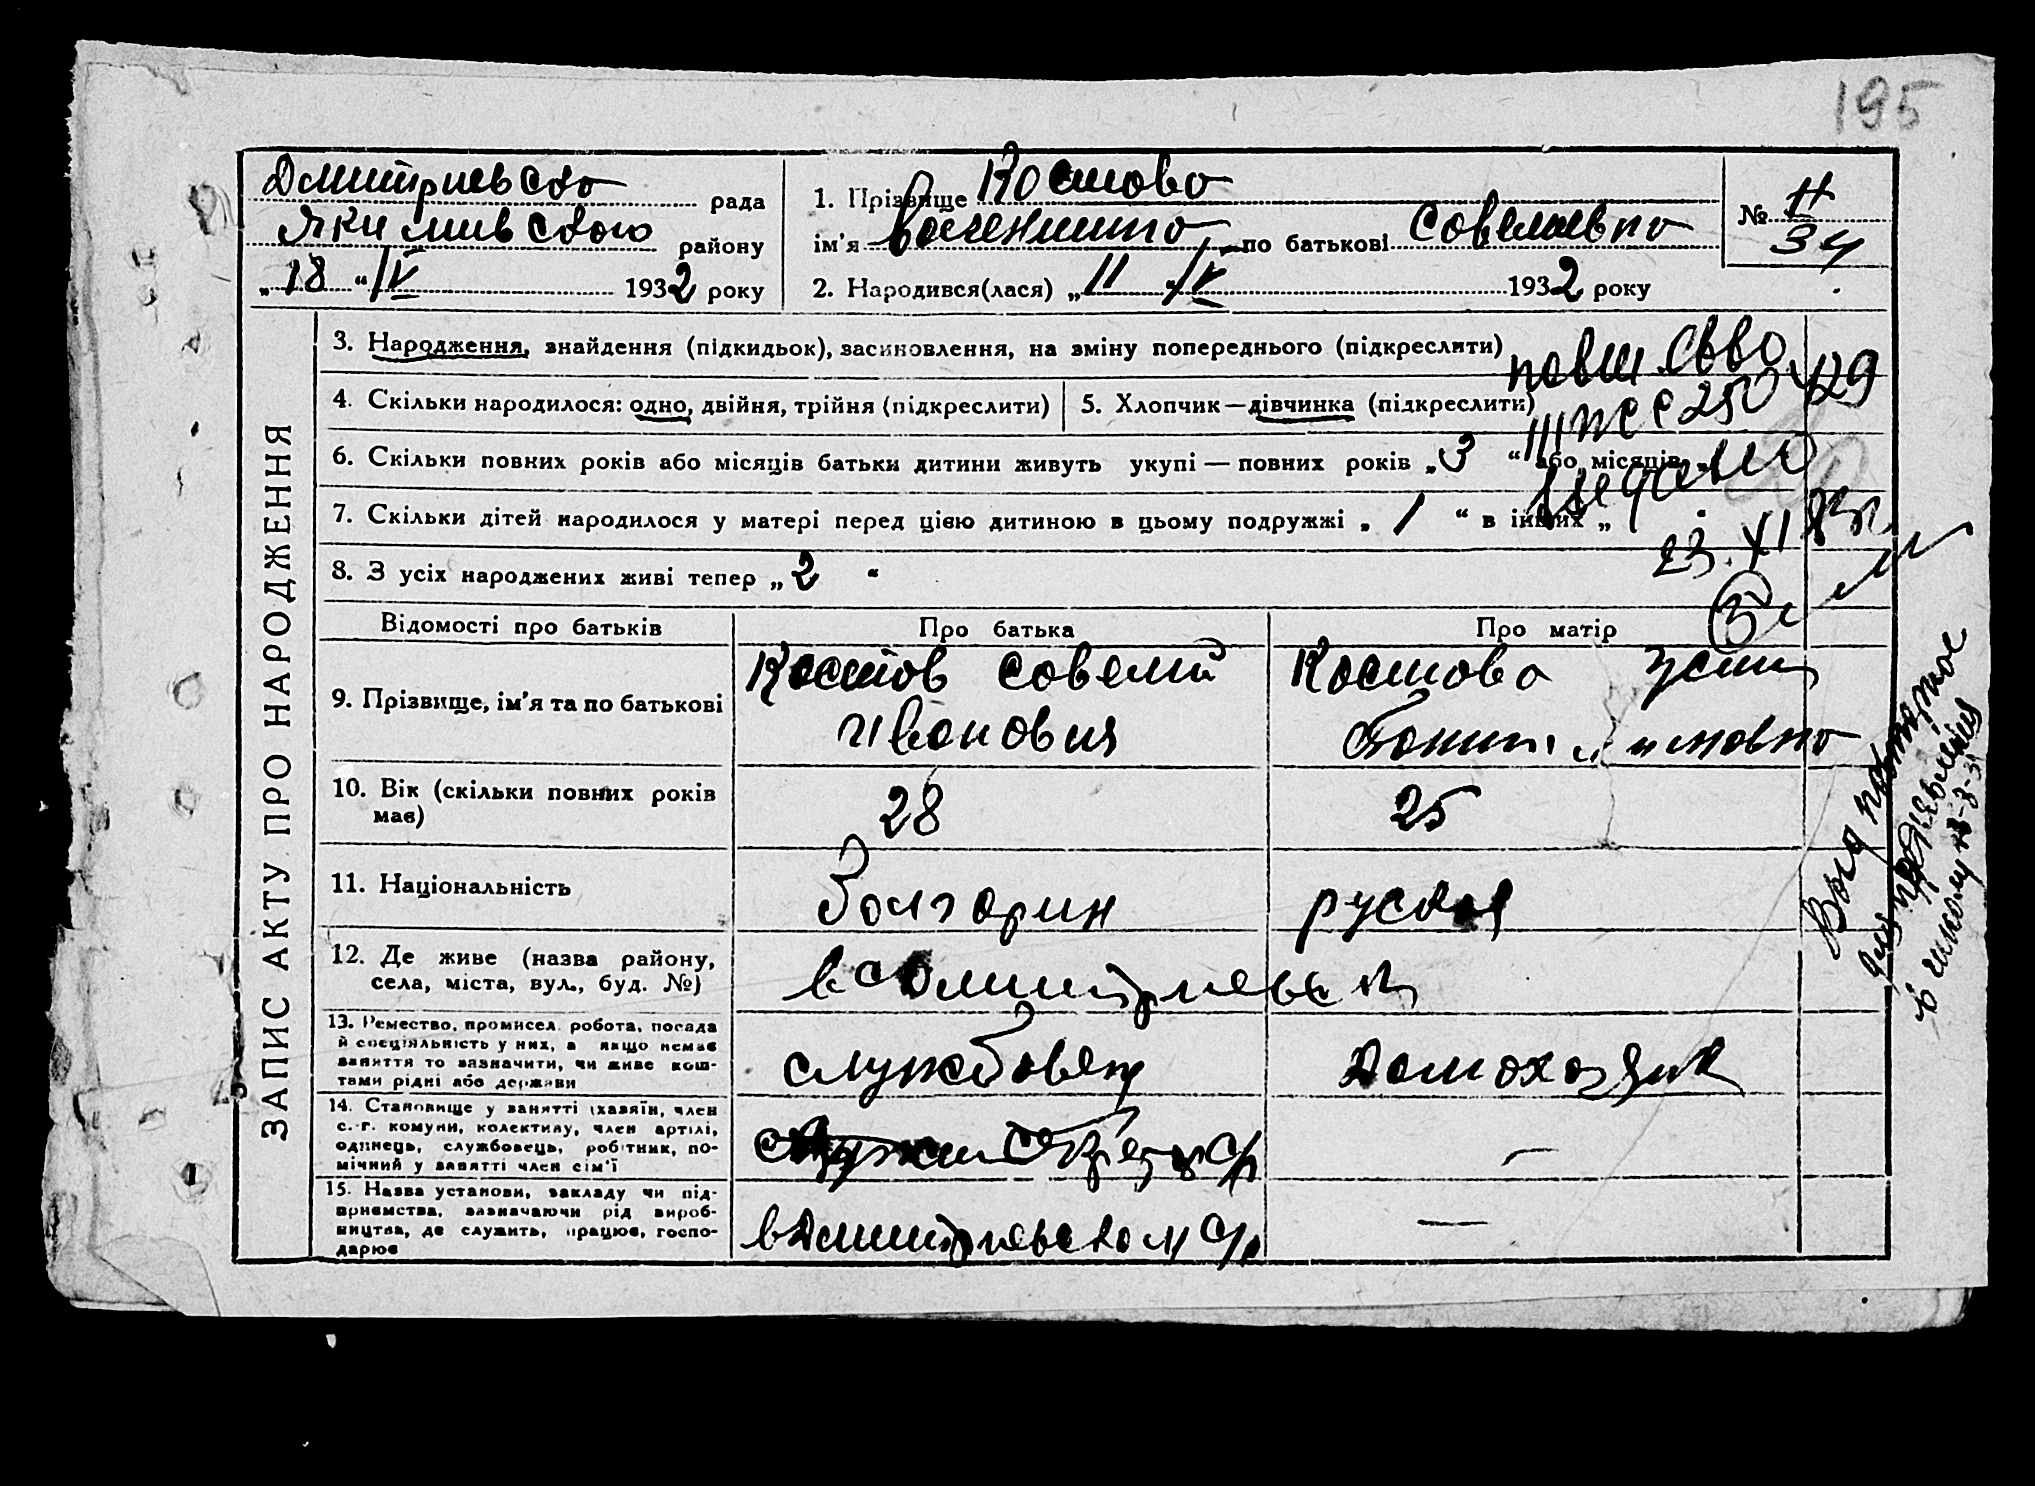 195
Дмитриевска рада
Якимивского району
„18“ IV 1932 року
1. Прізвище Костова
ім'я Валентина по батькові Совелиевна
2. Народився(лася) „11“ IV 1932 року
№ 11
34
ЗАПИС АКТУ ПРО НАРОДЖЕННЯ
3. Народження, знайдення (підкидьок), засиновлення, на зміну попереднього (підкреслити)
4. Скільки народилося: одно, двійня, трійня (підкреслити)
5. Хлопчик—дівчинка (підкреслити)
6. Скільки повних років або місяців батьки дитини живуть укупі — повних років „3“ або місяців „
7. Скільки дітей народилося у матері перед цією дитиною в цьому подружжі „1“ в інших „
8. З усіх народжених живі тепер „2“
23. XI
Відомості про батьків
Про батька
Про матір
9. Прізвище, ім'я та по батькові
Костов Совелий
Иванович
Костова
10. Вік (скільки повних років
має)
28
25
11. Національність
Болгарин
руская
12. Де живе (назва району,
села, міста, вул., буд. №)
13. Ремество, промисел, робота, посада
й спеціяльність у них, а якщо немає
заняття то зазначити, чи живе кош-
тами рідні або держави
службовец
Домохозяйк
14. Становище у занятті (хазяїн, член
с.-г. комуни, колективу, член артілі,
одинець, службовець, робітник, по-
мічний у занятті член сім'ї
—
15. Назва установи, закладу чи під-
приємства, зазначаючи рід вироб-
ництва, де служить, працює, госпо-
дарює
в Дмитриевском с/р
—